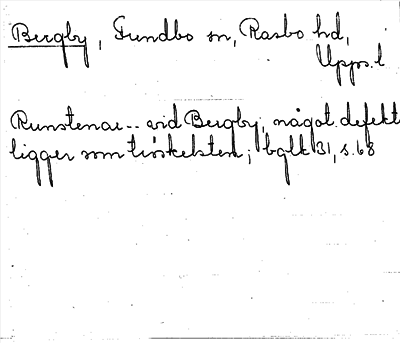 Bergby, Fundbo sn, Rasbo hd,
Upps. l
Runstenar.. vid Bergby, något defekt
ligger som tröskelsten; bglk 31, s. 68